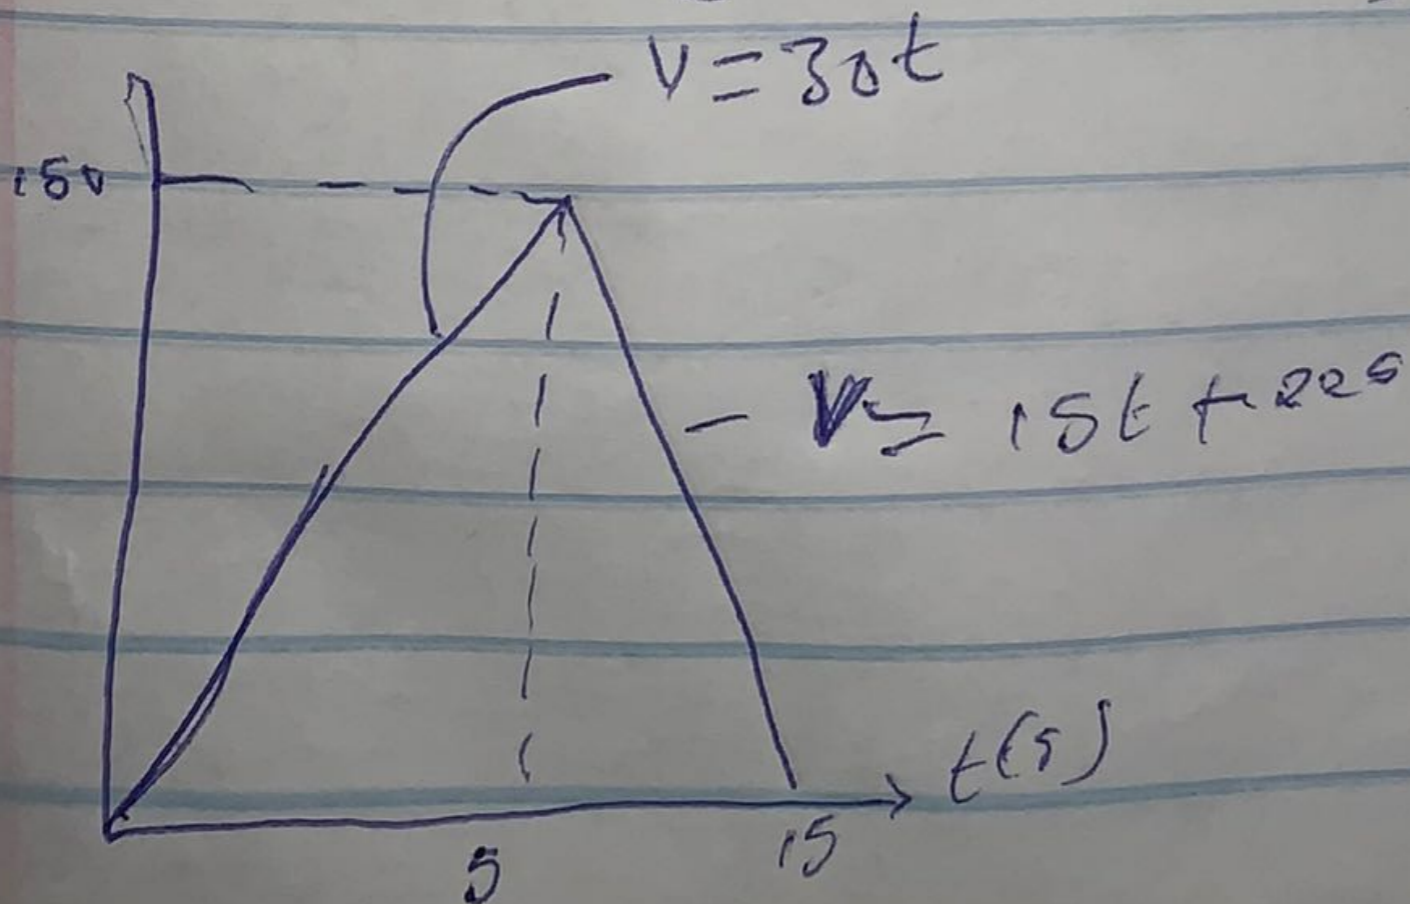 V = 30t
150
V = 15t + 225
t(s)
5
15